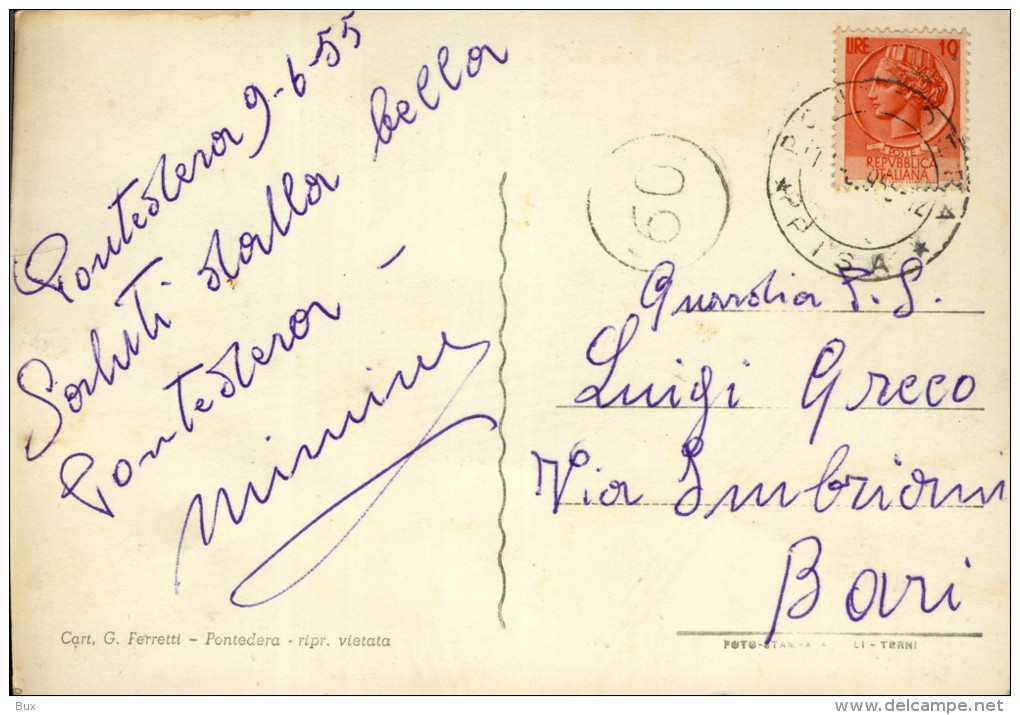 Pontedera 9-6-55
Saluti dalla bella
Pontedera -
Mimino
Cart, G. Ferretti - Pontedera - ripr. vietata
LIRE 10
POSTE
REPVBBLICA
ITALIANA
PONTEDERA
★ PISA ★
60
Guardia P. S.
Luigi Greco
Via Imbriani
Bari
LI - TERNI
Bux
delcampe.net